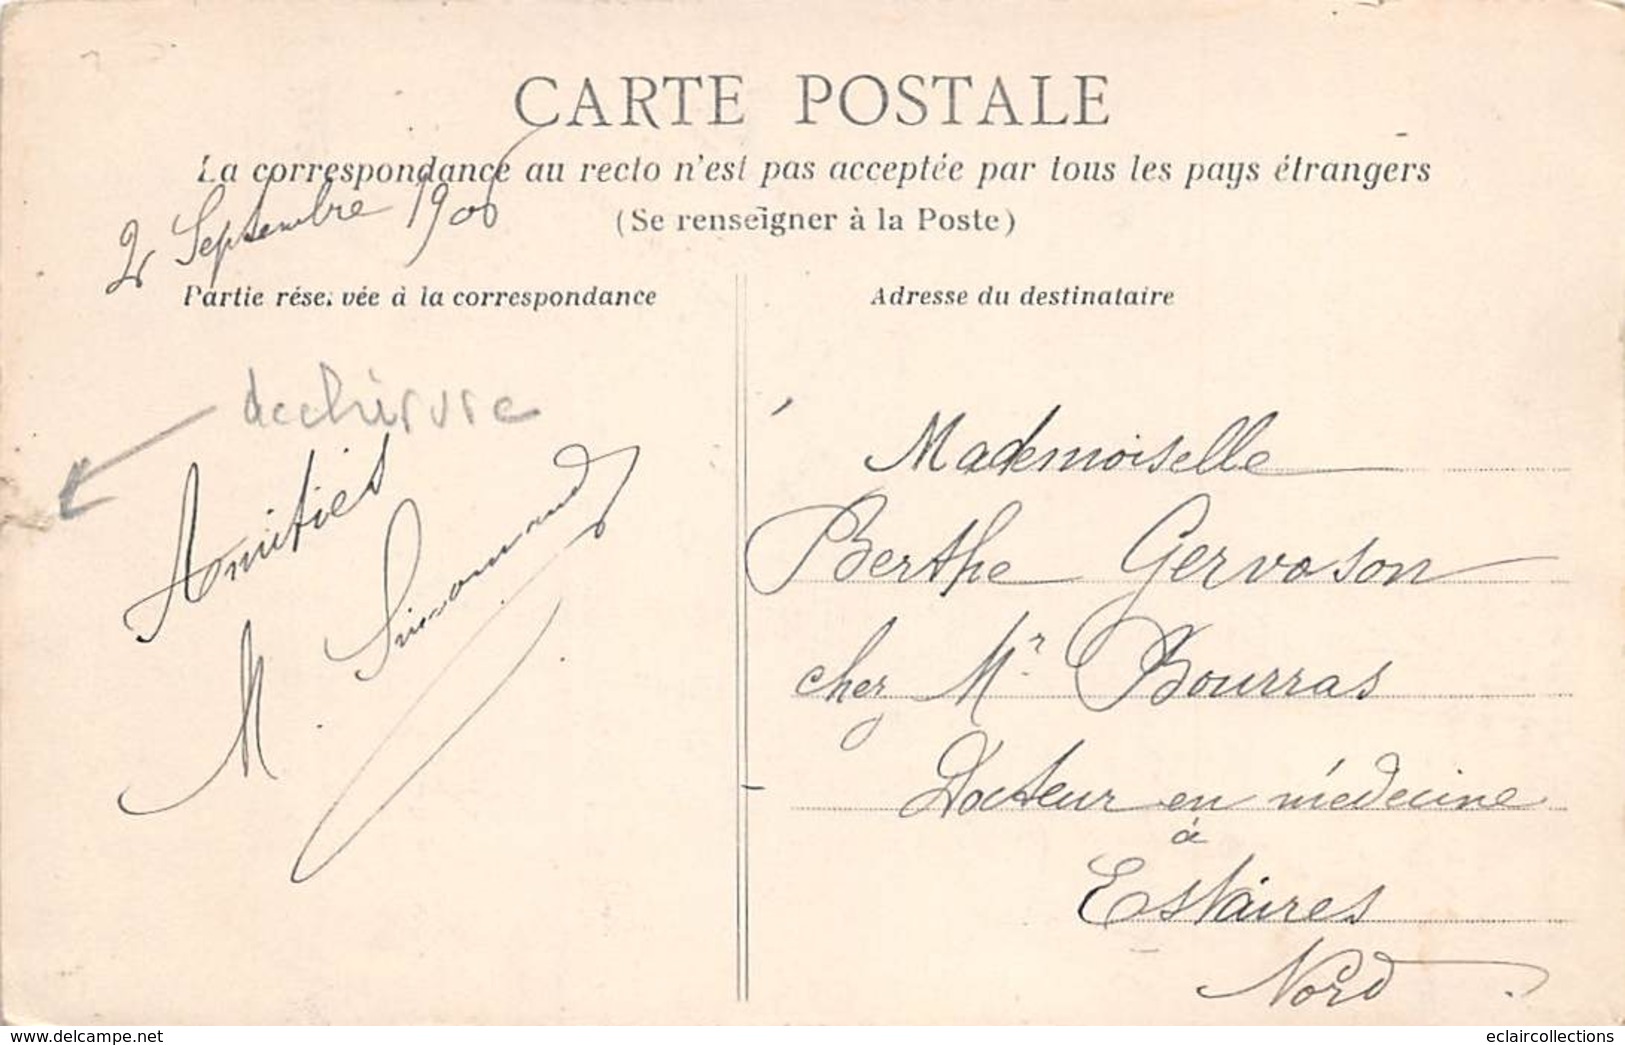 CARTE POSTALE
La correspondance au recto n'est pas acceptée par tous les pays étrangers
(Se renseigner à la Poste)
2 Septembre 1906
Partie réservée à la correspondance
Adresse du destinataire
dechirure
Amitiés
M. Simonand
Mademoiselle
Berthe Gervason
chez Mr. Bourras
Docteur en médecine
à
Estaires
Nord.
eclaircollections